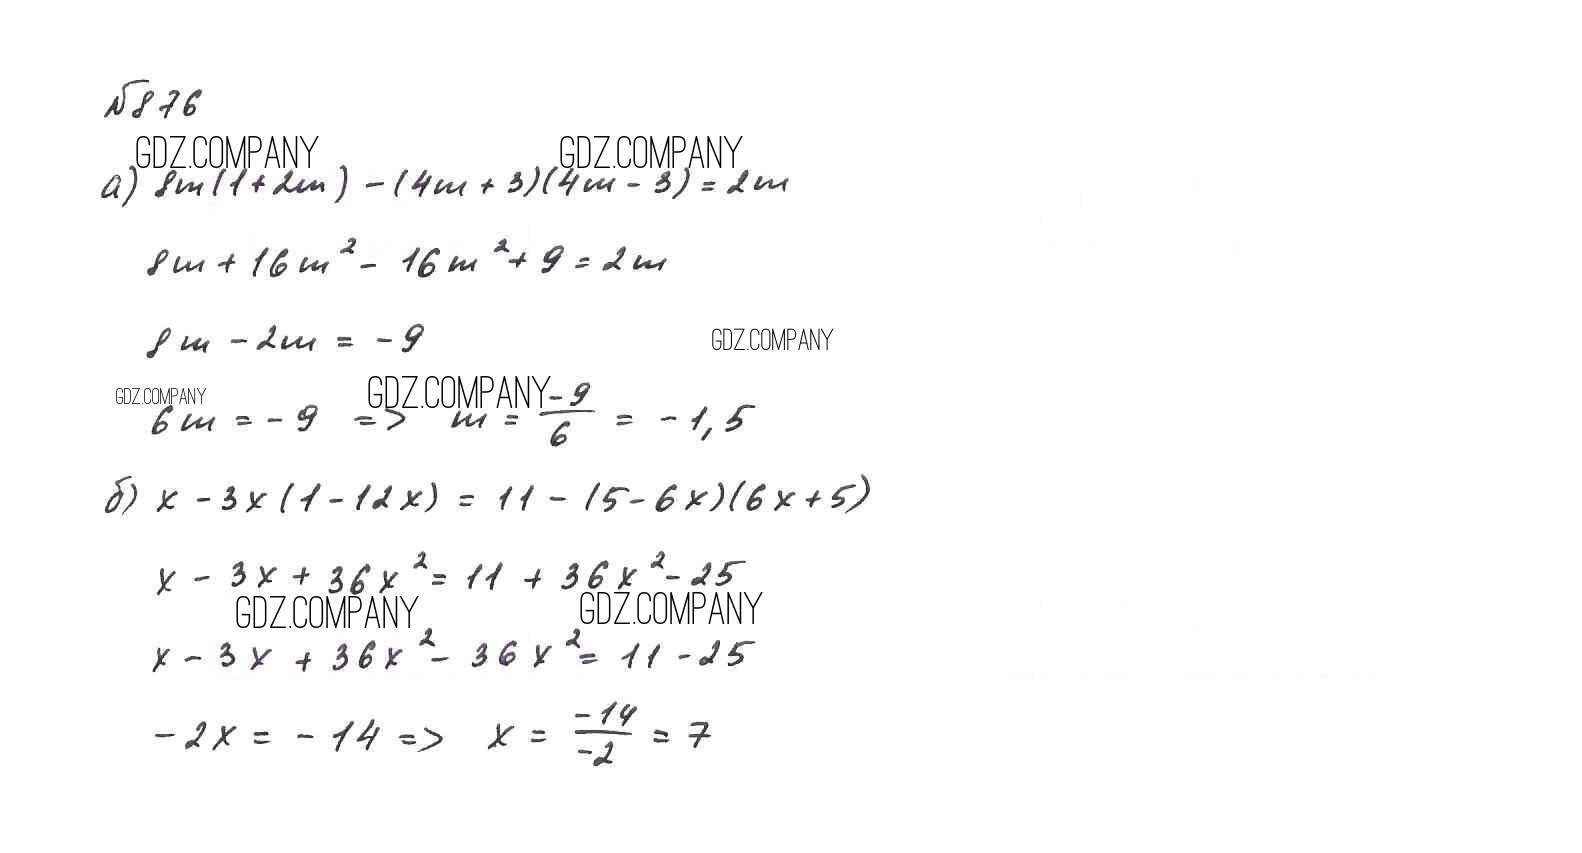 №876
GDZ.COMPANY GDZ.COMPANY
а) 8m(1+2m) - (4m+3)(4m-3) = 2m
8m + 16m² - 16m² + 9 = 2m
8m - 2m = -9
GDZ.COMPANY
GDZ.COMPANY GDZ.COMPANY
6m = -9 => m = -9/6 = -1,5
б) x - 3x(1-12x) = 11 - (5-6x)(6x+5)
x - 3x + 36x² = 11 + 36x² - 25
GDZ.COMPANY GDZ.COMPANY
x - 3x + 36x² - 36x² = 11 - 25
-2x = -14 => x = -14/-2 = 7